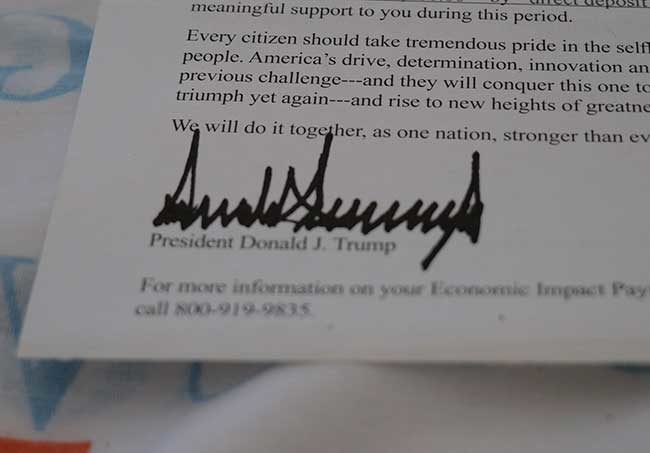 meaningful support to you during this period.
Every citizen should take tremendous pride in the self
people. America's drive, determination, innovation an
previous challenge---and they will conquer this one to
triumph yet again---and rise to new heights of greatne
We will do it together, as one nation, stronger than ev
President Donald J. Trump
For more information on your Economic Impact Pay
call 800-919-9835.